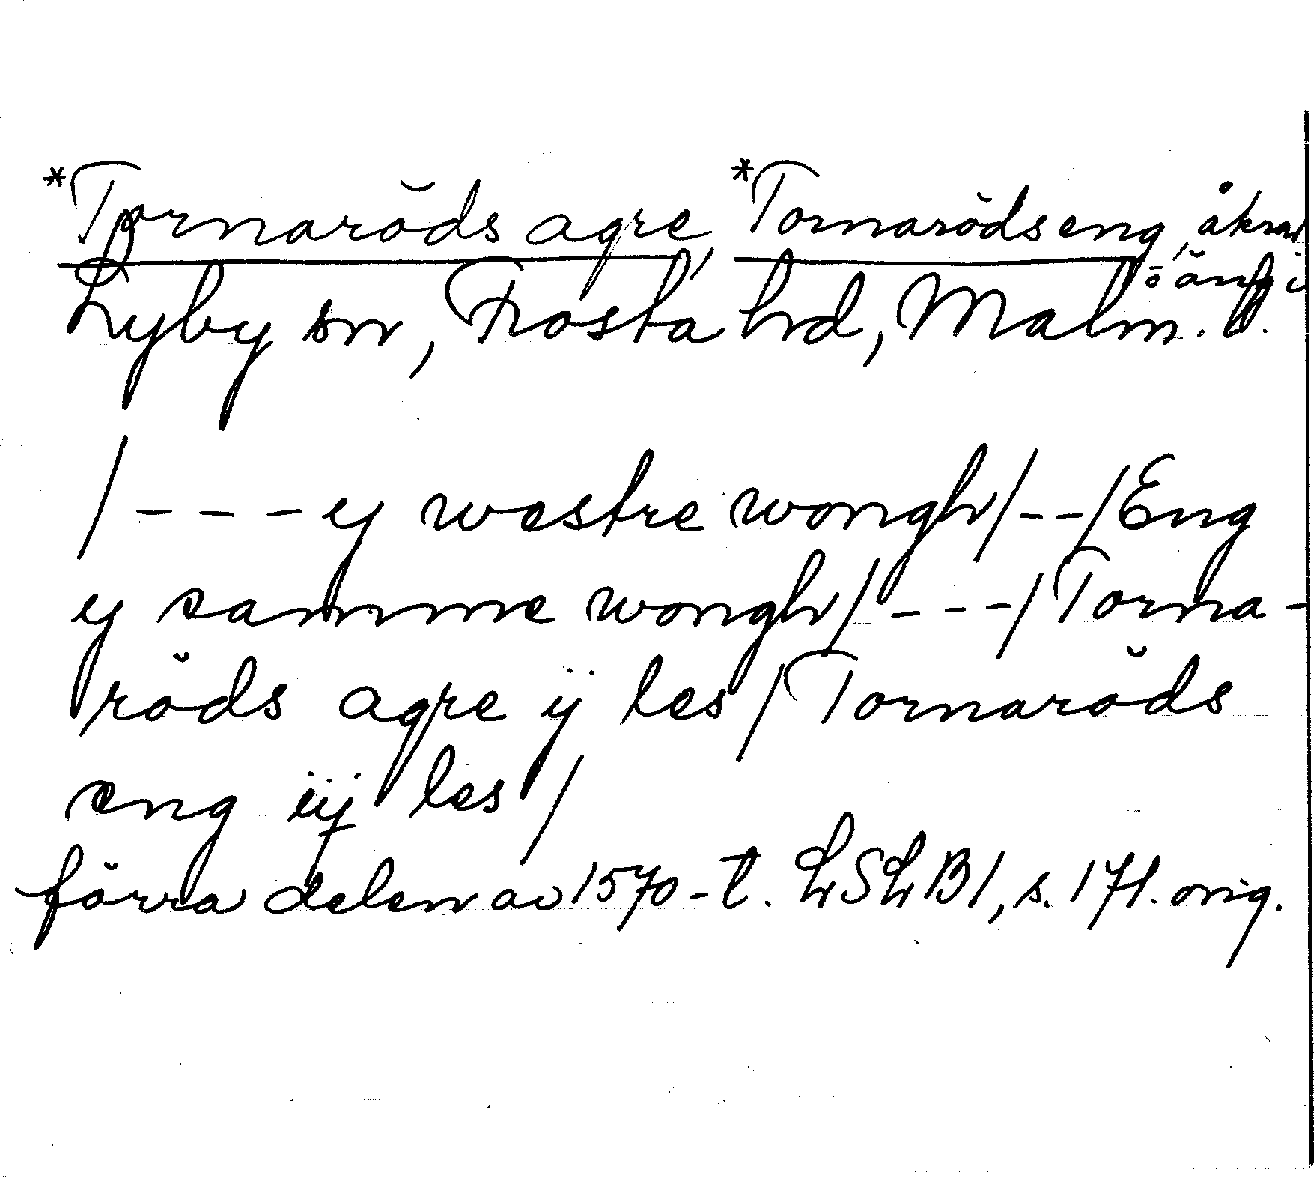 *Tornarŏds agre, *Tornarŏds eng, åkrar
o äng i
Lyby sn, Frosta hd, Malm. l.
/---y westre wongh/--/Eng
y samme wongh/---/Torna-
rŏds agre ÿ les/Tornarŏds
eng iij les/
förra delen av 1570-t. LSLB1, s. 171. orig.